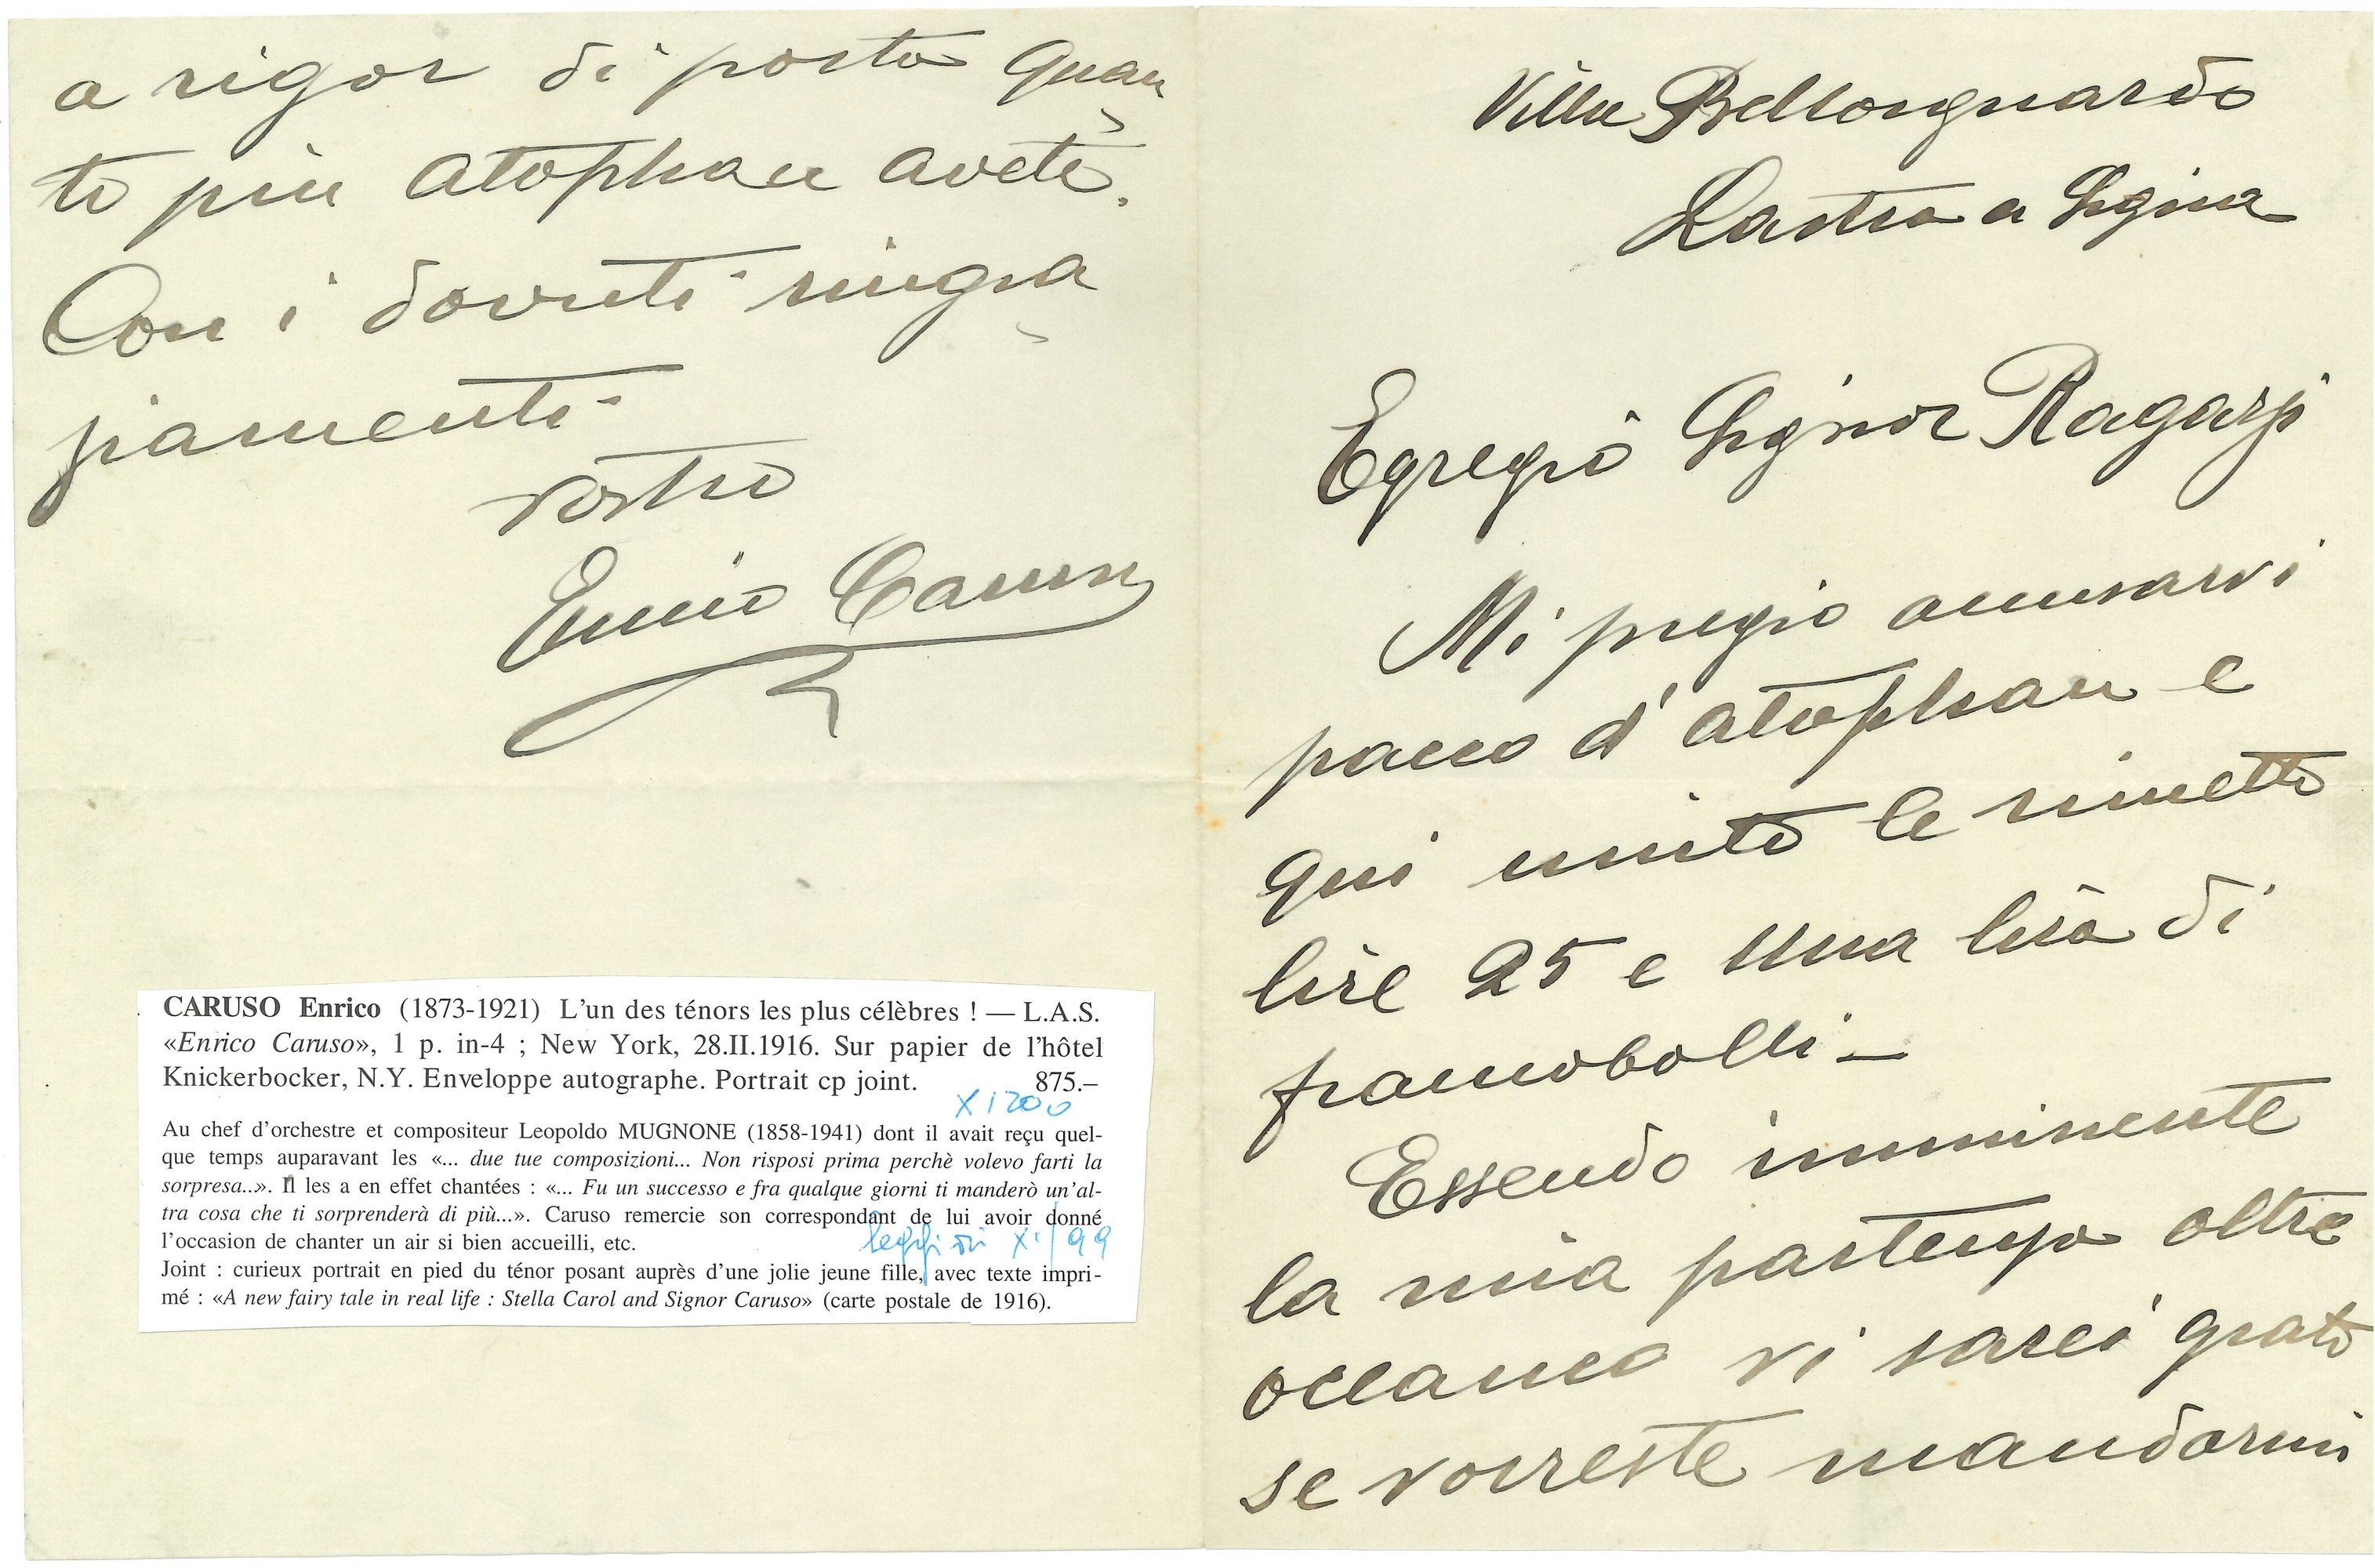 Villa Bellosguardo
Lastra a Signa
Egregio Signor Ragazzi
Mi pregio accusarvi
pacco d'atophan e
qui unito le rimetto
lire 25 e una lira di
francobolli –
Essendo imminente
la mia partenza oltre
occeano vi sarei grato
se vorreste mandarmi
a rigor di posta quan
to più atophan avete.
Con i dovuti ringra
ziamenti
vostro
Enrico Caruso
CARUSO Enrico (1873-1921) L'un des ténors les plus célèbres ! — L.A.S.
«Enrico Caruso», 1 p. in-4 ; New York, 28.II.1916. Sur papier de l'hôtel
Knickerbocker, N.Y. Enveloppe autographe. Portrait cp joint. 875.–
X 1200
Au chef d'orchestre et compositeur Leopoldo MUGNONE (1858-1941) dont il avait reçu quel-
que temps auparavant les «... due tue composizioni... Non risposi prima perchè volevo farti la
sorpresa..». Il les a en effet chantées : «... Fu un successo e fra qualque giorni ti manderò un'al-
tra cosa che ti sorprenderà di più...». Caruso remercie son correspondant de lui avoir donné
l'occasion de chanter un air si bien accueilli, etc.
XI/99
Joint : curieux portrait en pied du ténor posant auprès d'une jolie jeune fille, avec texte impri-
mé : «A new fairy tale in real life : Stella Carol and Signor Caruso» (carte postale de 1916).